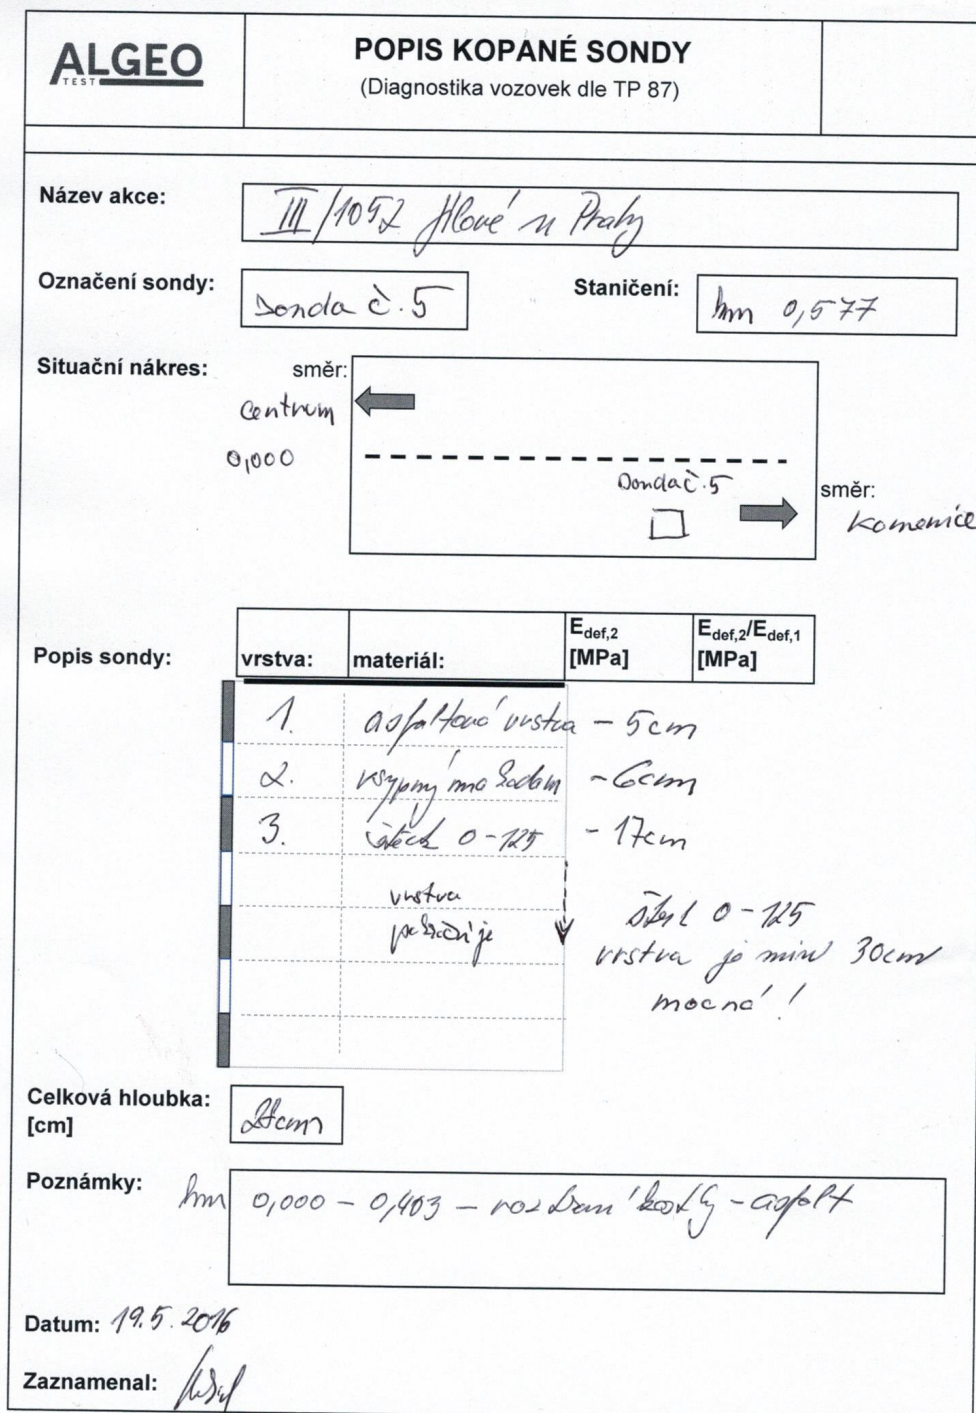 ALGEO
TEST
POPIS KOPANÉ SONDY
(Diagnostika vozovek dle TP 87)
Název akce: III/1052 Jílové u Prahy
Označení sondy: Sonda č. 5 Staničení: km 0,577
Situační nákres: směr:
centrum
0,000
Sonda č. 5
směr:
Kamenice
Popis sondy: vrstva: materiál: Edef,2 [MPa] Edef,2/Edef,1 [MPa]
1. asfaltová vrstva - 5cm
2. vsypný makadam - 6cm
3. štěrk 0-125 - 17cm
vrstva
pokračuje
štěrk 0-125
vrstva je min 30cm
mocná!
Celková hloubka: 28cm
[cm]
Poznámky: km 0,000 - 0,403 - kostky - asfalt
Datum: 19.5.2016
Zaznamenal: